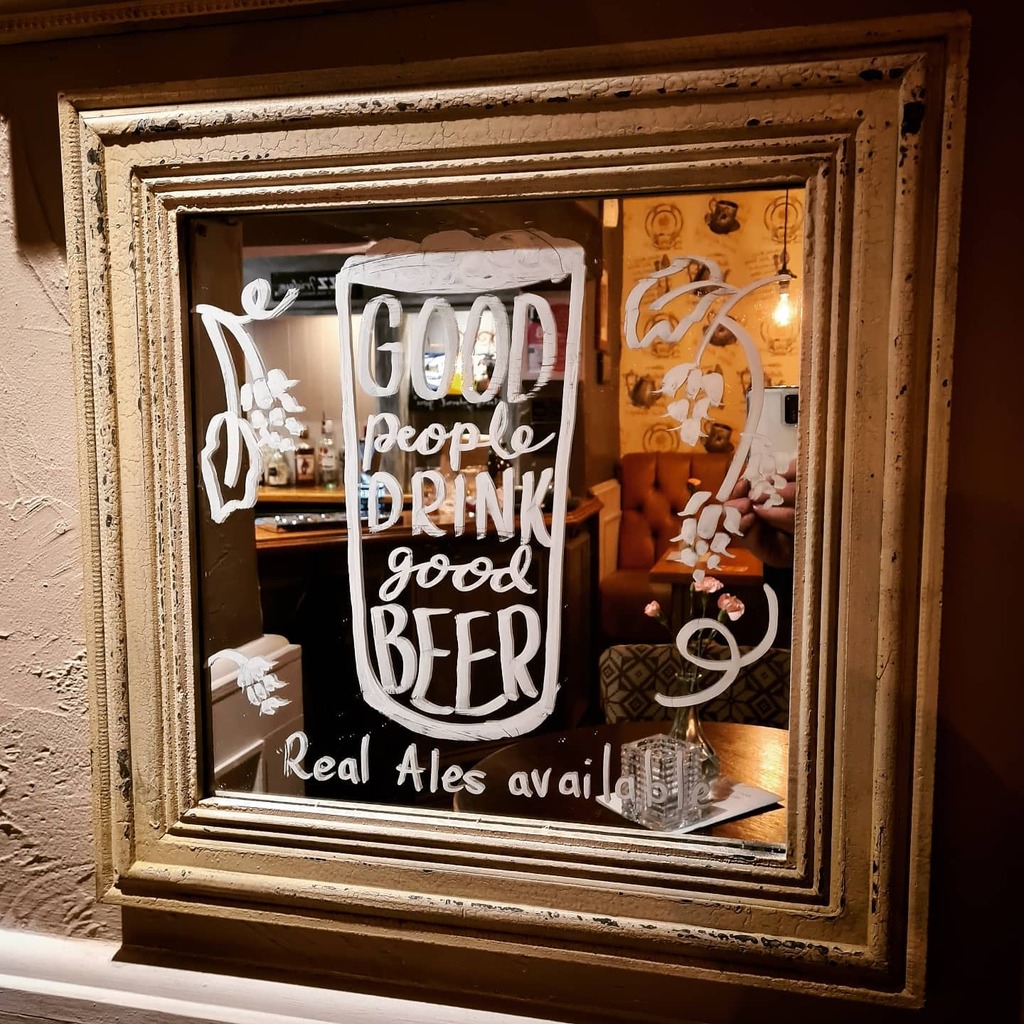 GOOD
people
DRINK
good
BEER
Real Ales available